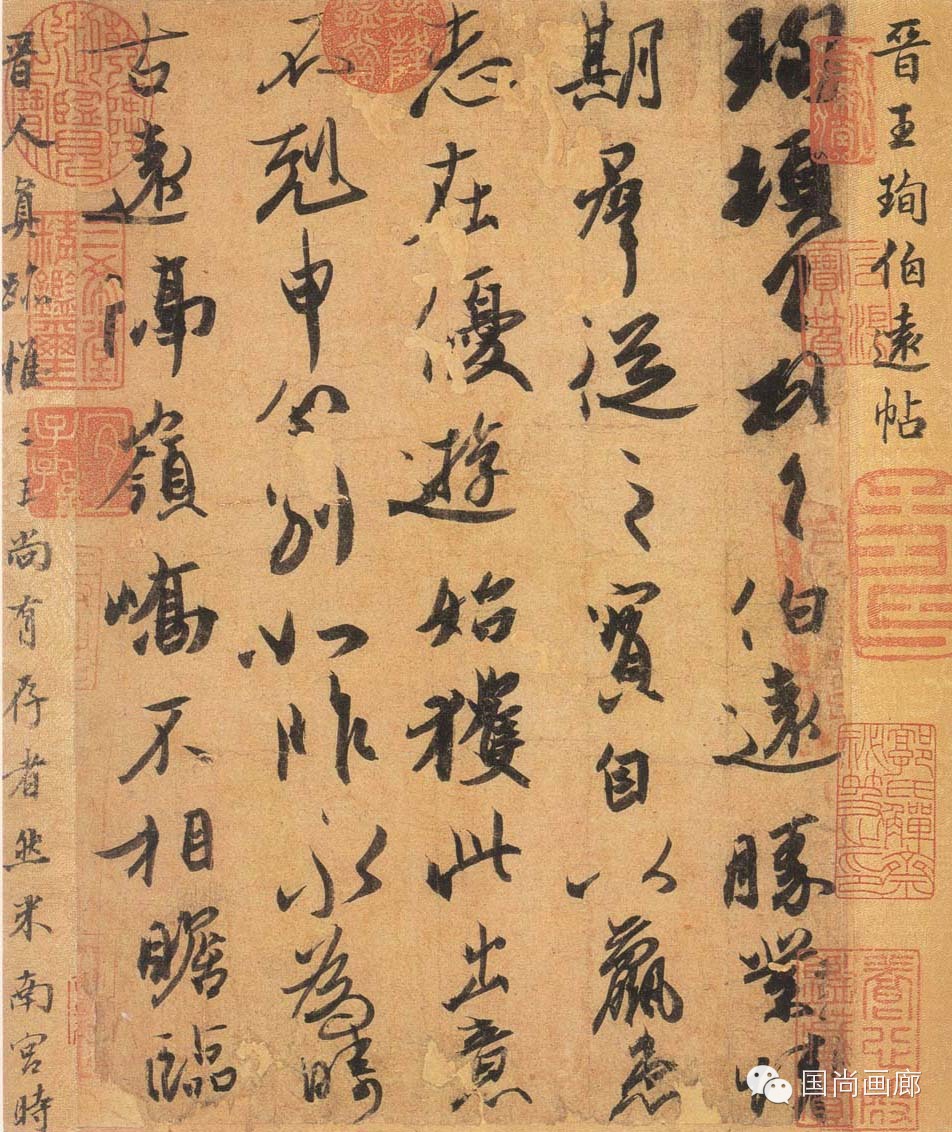 晉王珣伯遠帖
珣頓首頓首伯遠勝業情
期羣從之寶自以羸患
志在優遊始獲此出意
不剋申分別如昨永為疇
古遠隔嶺嶠不相瞻臨
晉人真跡惟二王尚有存者然米南宮時
三希堂精鑑璽
宜子孫
郭氏觶齋秘笈之印
国尚画廊